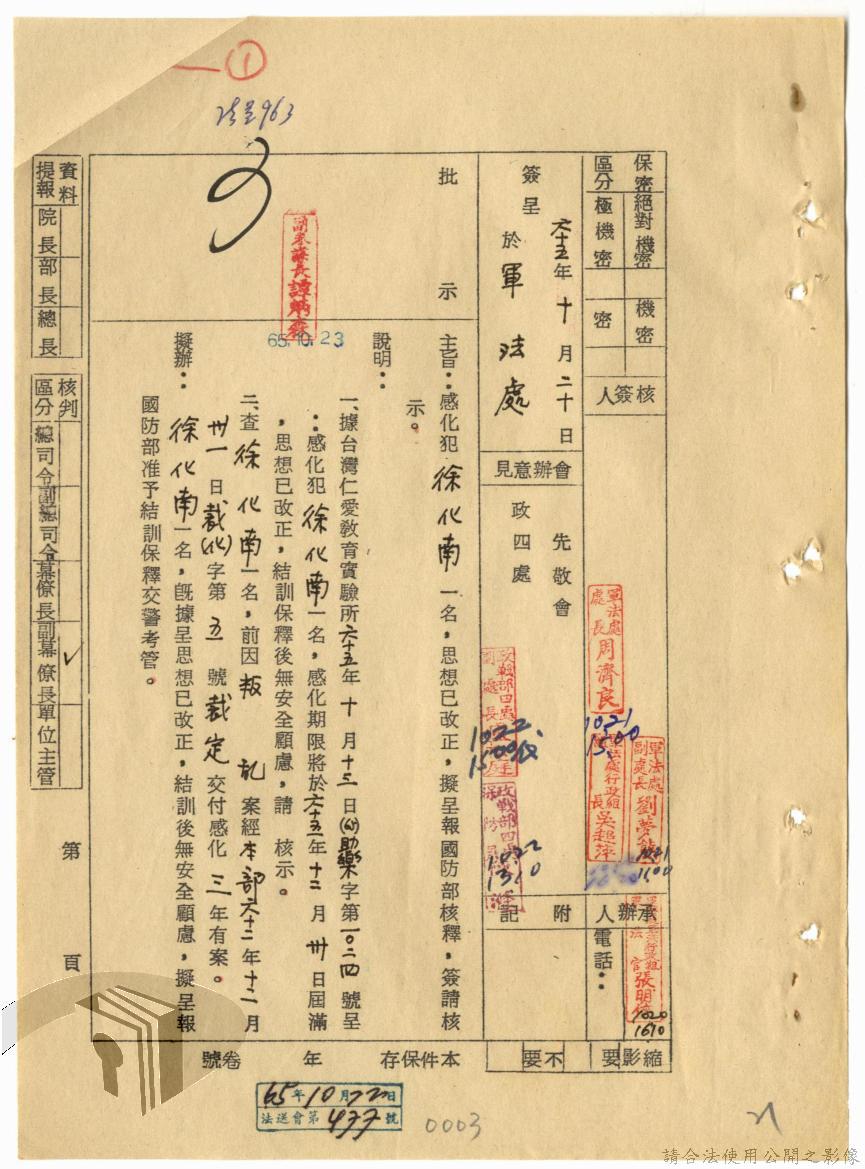 ①
963
保密區分
絕對機密
極機密
機密
密
核簽人
承辦人
電話：
縮影要
不要
簽呈
六十五年十月二十日
於軍法處
會辦意見
先敬會
政四處
附記
軍法處處長周濟良
1021
1500
軍法處副處長劉夢熊
1021
1100
軍法處行政組組長吳超萍
張明
1020
1610
1022
1500
1022
1310
批示
副參謀長譚炳森
65.10.23
主旨：感化犯徐化南一名，思想已改正，擬呈報國防部核釋，簽請核
示。
說明：
一、據台灣仁愛教育實驗所六十五年十月十三日字第一〇二四號呈
：感化犯徐化南一名，感化期限將於六十五年十二月卅日屆滿
，思想已改正，結訓保釋後無安全顧慮，請　核示。
二、查徐化南一名，前因叛亂案經本部六十二年十二月
卅一日裁(化)字第五號裁定交付感化三年有案。
擬辦：徐化南一名，既據呈思想已改正，結訓後無安全顧慮，擬呈報
國防部准予結訓保釋交警考管。
資料提報
院長
部長
總長
核判區分
總司令
副總司令
幕僚長
副幕僚長
✓
單位主管
第　頁
本件保存　年　卷號
65年10月22日
法送會第477號
0003
請合法使用公開之影像